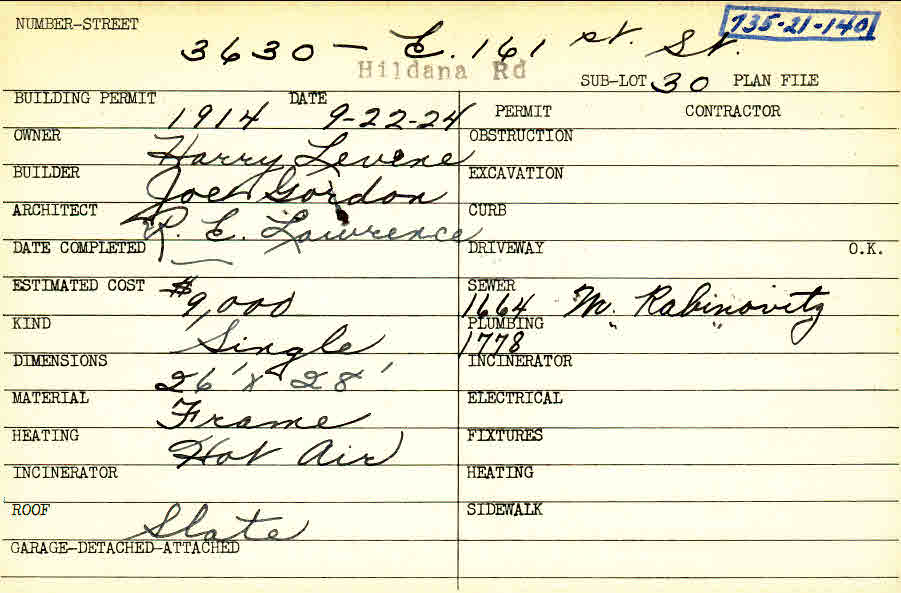 NUMBER-STREET
735-21-140
3630 - E. 161 st. St.
Hildana Rd
SUB-LOT 30 PLAN FILE
BUILDING PERMIT 1914 DATE 9-22-24
OWNER Harry Levine
BUILDER Joe Gordon
ARCHITECT R. E. Lawrence
DATE COMPLETED
ESTIMATED COST $9,000
KIND Single
DIMENSIONS 26' x 28'
MATERIAL Frame
HEATING Hot Air
INCINERATOR
ROOF Slate
GARAGE-DETACHED-ATTACHED
PERMIT CONTRACTOR
OBSTRUCTION
EXCAVATION
CURB
DRIVEWAY O.K.
SEWER 1664 M. Rabinovitz
PLUMBING 1778 " "
INCINERATOR
ELECTRICAL
FIXTURES
HEATING
SIDEWALK